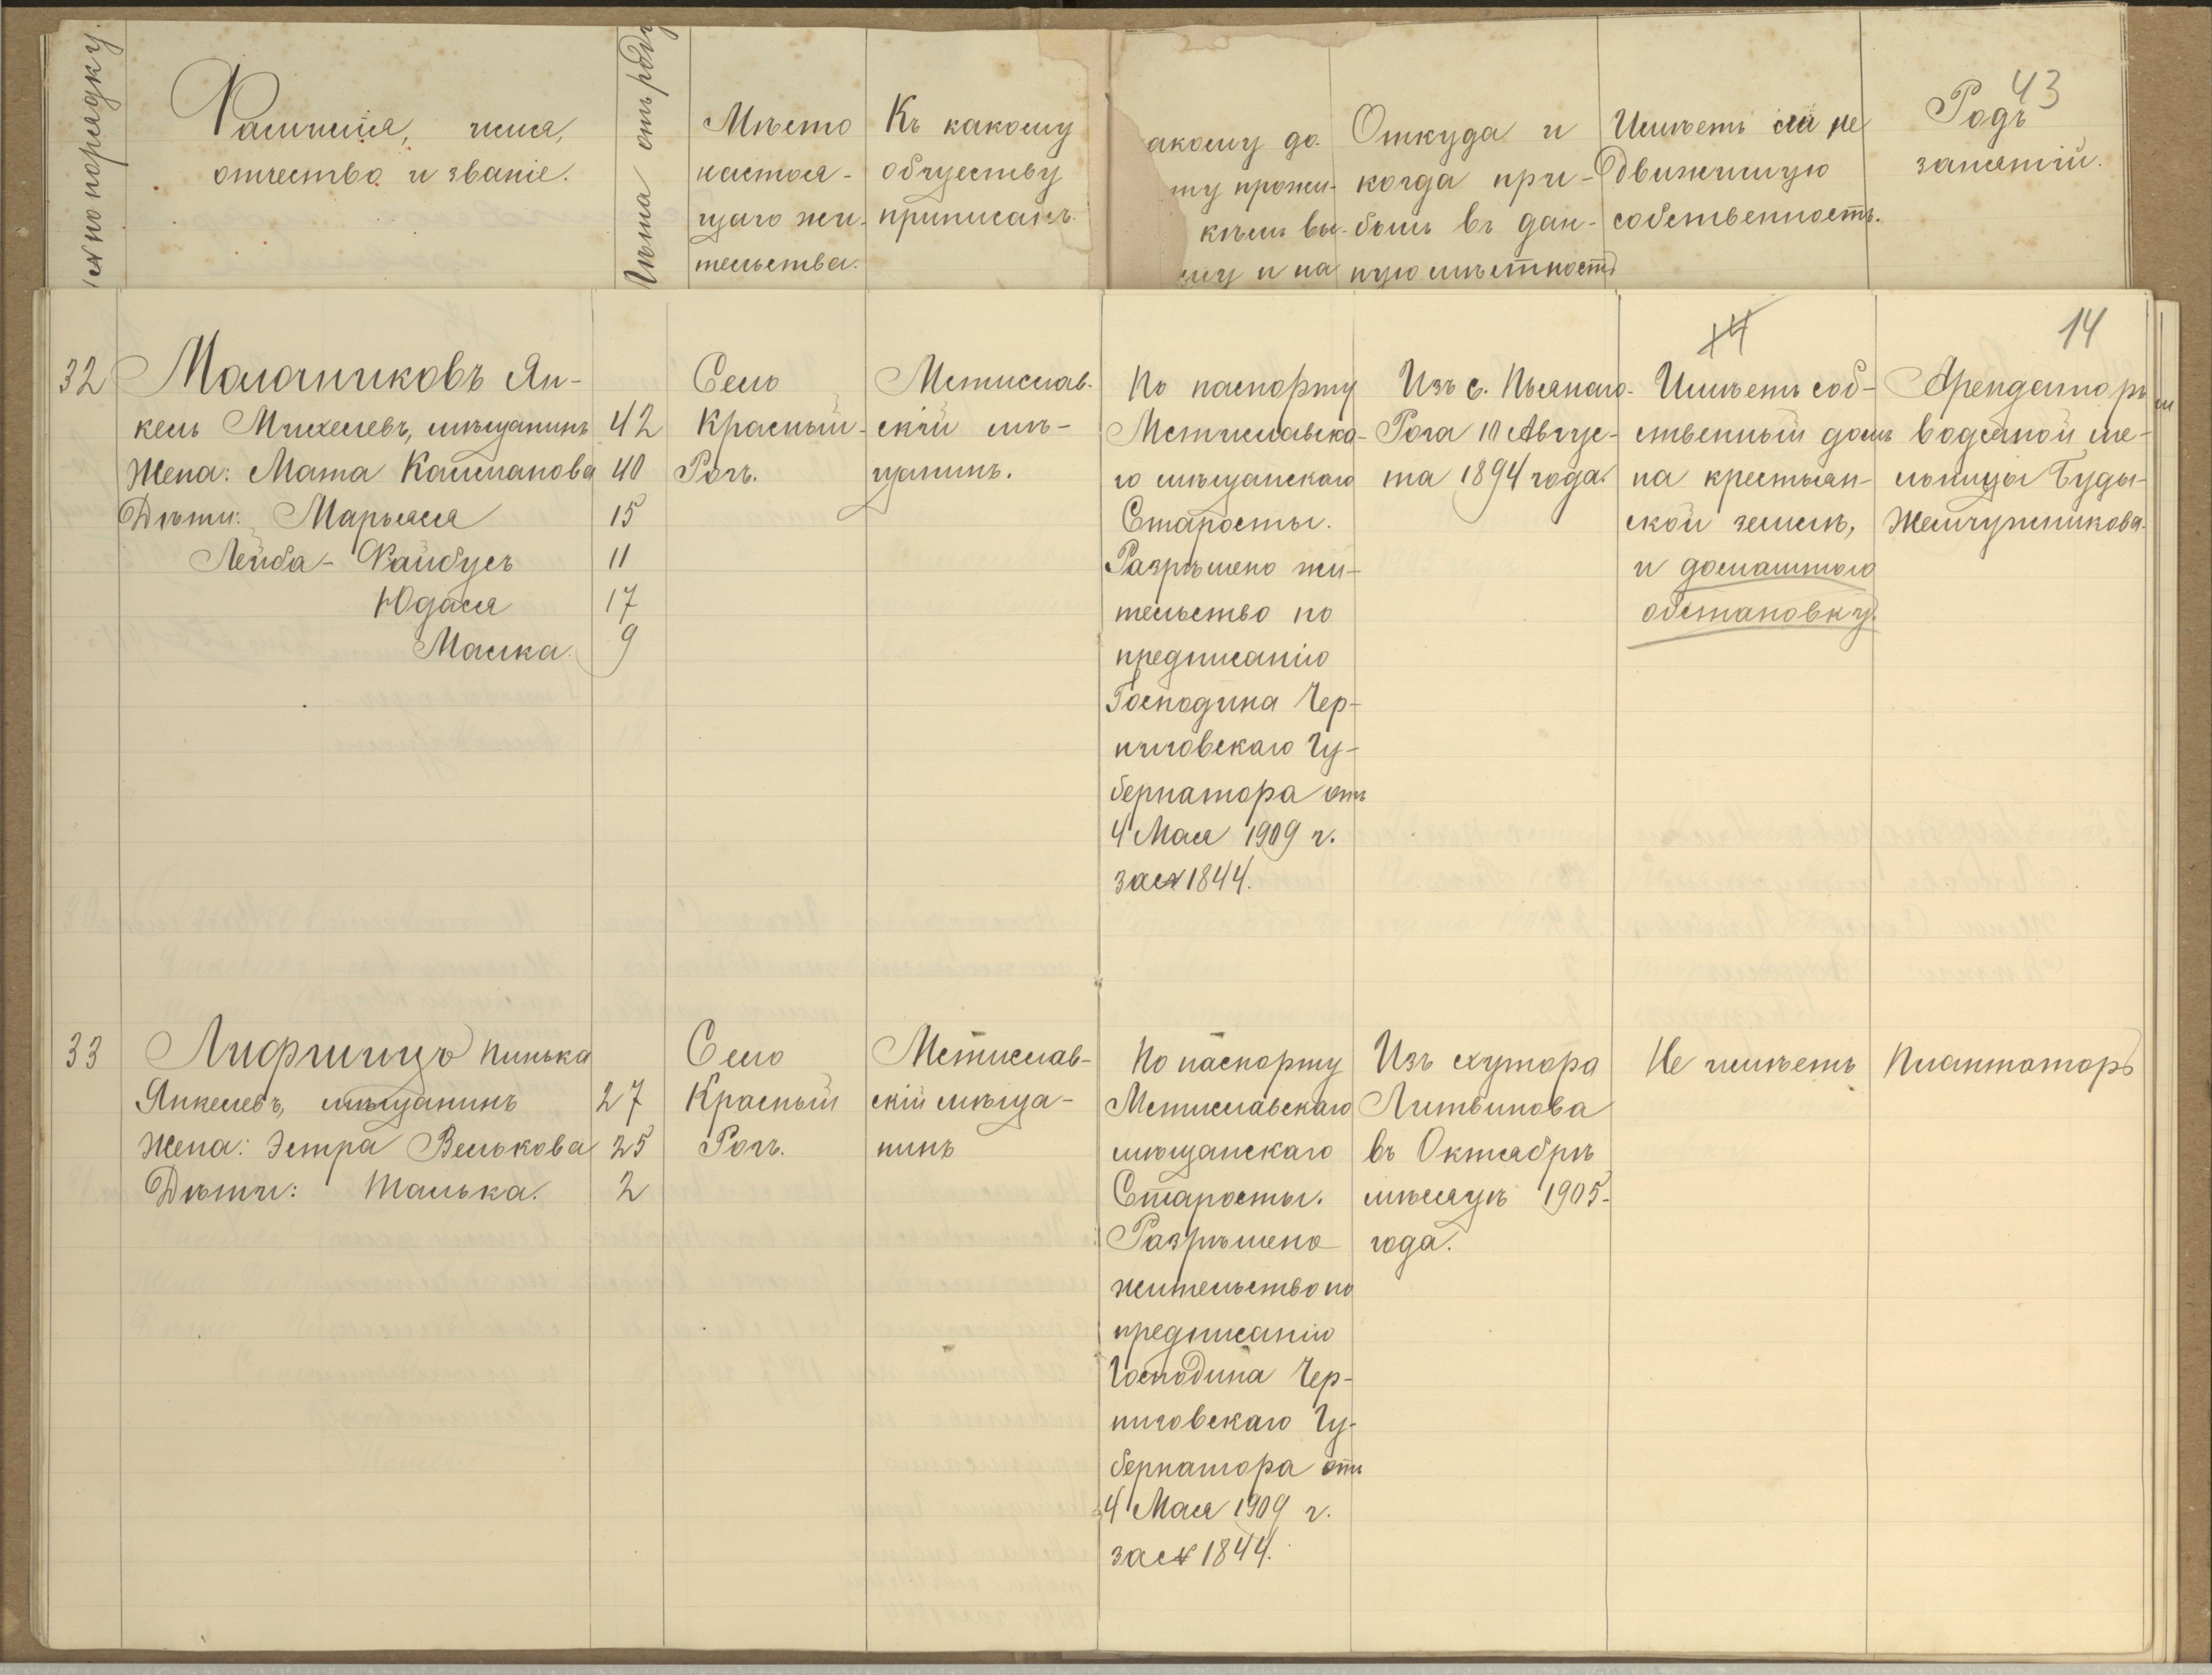 43
№ по порядку
Фамилія, имя,
отчество и званіе.
Лѣта отъ роду
Мѣсто
настоя-
щаго жи-
тельства.
Къ какому
обществу
приписанъ.
акому до-
ту прожи-
кѣмъ вы-
му и на
Откуда и
когда при-
былъ въ дан-
ную мѣстность
Имѣетъ ли не
движимую
собственность.
Родъ
занятій.
14
32
Молочниковъ Ян-
кель Михелевъ, мѣщанинъ 42
Жена: Мата Калманова 40
Дѣти: Марьяся 15
Лейба-Файбусъ 11
Юдася 17
Малка 9
Село
Красный-
Рогъ.
Мстислав-
скій мѣ-
щанинъ.
По паспорту
Мстиславска-
го мѣщанскаго
Старосты.
Разрѣшено жи-
тельство по
предписанію
Господина Чер-
ниговскаго Гу-
бернатора отъ
4 Мая 1909 г.
за № 1844.
Изъ с. Пьянаго-
Рога 10 Авгус-
та 1894 года.
Имѣетъ соб-
ственный домъ
на крестьян-
ской землѣ,
и домашнюю
обстановку.
Арендаторъ
водяной ме-
льницы Буды-
Жемчужникова.
33
Лифшицъ Пинька
Янкелевъ, мѣщанинъ 27
Жена: Эстра Велькова 25
Дѣти: Талька. 2
Село
Красный
Рогъ.
Мстислав-
скій мѣща-
нинъ
По паспорту
Мстиславскаго
мѣщанскаго
Старосты.
Разрѣшено
жительство по
предписанію
Господина Чер-
ниговскаго Гу-
бернатора отъ
4 Мая 1909 г.
за № 1844.
Изъ хутора
Литвинова
въ Октябрѣ
мѣсяцѣ 1905-
года.
Не имѣетъ
Плантаторъ